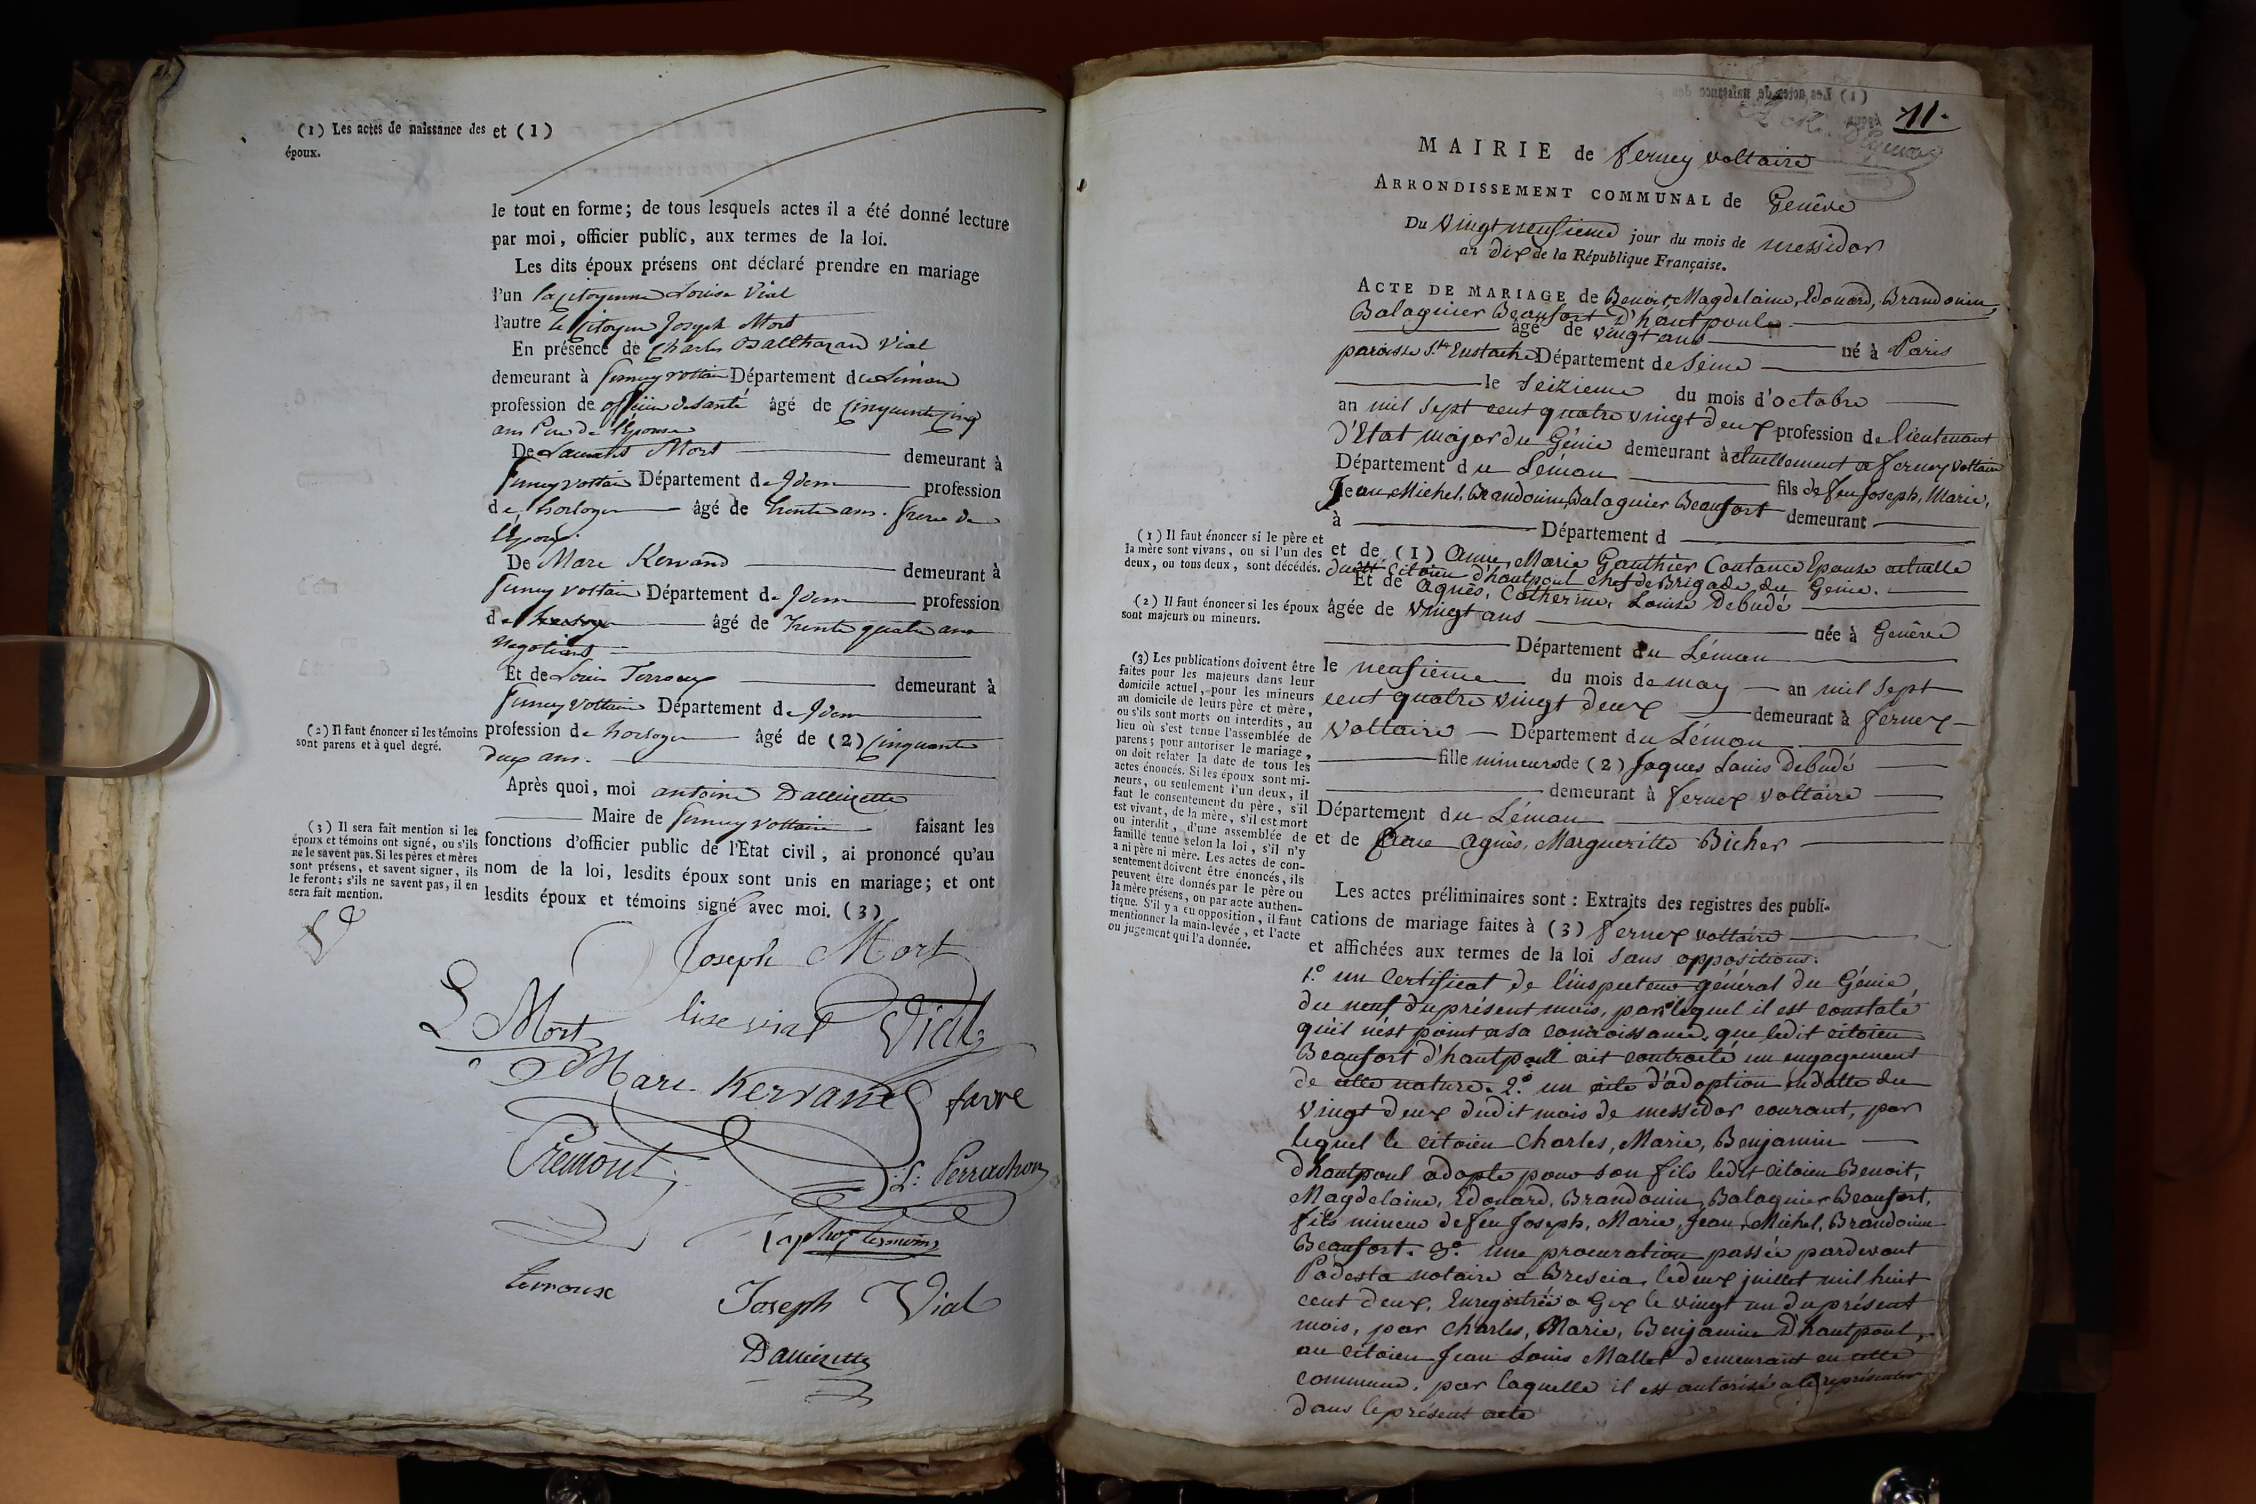 (1) Les actes de naissance des
époux.
et (1)
le tout en forme; de tous lesquels actes il a été donné lecture
par moi, officier public, aux termes de la loi.
Les dits époux présens ont déclaré prendre en mariage
l'un la Citoyenne Louise Vial
l'autre le Citoyen Joseph Mort
En présence de Charles Balthazard Vial
demeurant à ferney voltaire Département du Léman
profession de officier de Santé âgé de Cinquante Cinq
ans Père de l'Epouse
De Laurent Mort demeurant à
ferney voltaire Département de Idem profession
de horloger âgé de trente ans. frere de
l'Epoux.
De Marc Kervand demeurant à
ferney voltaire Département de Idem profession
de âgé de trente quatre ans
negotiant
Et de Louis Terroux demeurant à
ferney voltaire Département de Idem
(2) Il faut énoncer si les témoins
sont parens et à quel degré.
profession de horloger âgé de (2) Cinquante
deux ans.
Après quoi, moi antoine
Maire de ferney voltaire faisant les
(3) Il sera fait mention si les
époux et témoins ont signé, ou s'ils
ne le savent pas. Si les pères et mères
sont présens, et savent signer, ils
le feront; s'ils ne savent pas, il en
sera fait mention.
fonctions d'officier public de l'Etat civil, ai prononcé qu'au
nom de la loi, lesdits époux sont unis en mariage; et ont
lesdits époux et témoins signé avec moi. (3)
Joseph Mort
L Mort lise vial Vial
Marc Kervand favre
Cremont
L: Perrachon
terroux
Joseph Vial
11.
MAIRIE de ferney voltaire
ARRONDISSEMENT COMMUNAL de Genève
Du Vingt neufieme jour du mois de messidor
an dix de la République Française.
ACTE DE MARIAGE de Benoit, Magdelaine, Edouard, Brandouin,
Balaguier Beaufort D'hautpoul
âgé de vingt ans né à Paris
paroisse S.te Eustache Département de Seine
le Seizieme du mois d'octobre
an mil sept cent quatre vingt deux profession de lieutenant
d'Etat major du Génie demeurant actuellement a ferney voltaire
Département du Léman fils de feu Joseph, Marie,
Jean, Michel, Brandouin, Balaguier Beaufort demeurant
à Département d
(1) Il faut énoncer si le père et
la mère sont vivans, ou si l'un des
deux, ou tous deux, sont décédés.
et de (1) Anne, Marie Gauthier Coutance Epouse actuelle
du Citoien d'hautpoul chef de Brigade du Génie.
Et de Agnès, Catherine, Louise Debudé
(2) Il faut énoncer si les époux
sont majeurs ou mineurs.
âgée de vingt ans née à Genève
Département du Léman
(3) Les publications doivent être
faites pour les majeurs dans leur
domicile actuel, pour les mineurs
au domicile de leurs père et mère,
ou s'ils sont morts ou interdits, au
lieu où s'est tenue l'assemblée de
parens; pour autoriser le mariage,
on doit relater la date de tous les
actes énoncés. Si les époux sont mi-
neurs, ou seulement l'un deux, il
faut le consentement du père, s'il
est vivant, de la mère, s'il est mort
ou interdit, d'une assemblée de
famille tenue selon la loi, s'il n'y
a ni père ni mère. Les actes de con-
sentement doivent être énoncés, ils
peuvent être donnés par le père ou
la mère présens, ou par acte authen-
tique. S'il y a eu opposition, il faut
mentionner la main-levée, et l'acte
ou jugement qui l'a donnée.
le neufieme du mois de may an mil sept
cent quatre vingt deux demeurant à ferney
Voltaire Département du Léman
fille mineure de (2) Jaques Louis Debudé
demeurant à ferney voltaire
Département du Léman
et de Agnès, Margueritte Bicher
Les actes préliminaires sont: Extraits des registres des publi-
cations de mariage faites à (3) ferney voltaire
et affichées aux termes de la loi sans oppositions.
1.° un Certificat de l'inspecteur général du Génie
du neuf du présent mois, par lequel il est constaté
qu'il n'est point a sa connoissance, que ledit citoien
Beaufort d'hautpoul ait contracté un engagement
de cette nature. 2.° un acte d'adoption en datte du
vingt deux dudit mois de messidor courant, par
lequel le citoien Charles, Marie, Benjamin
d'hautpoul adopte pour son fils ledit Citoien Benoit,
Magdelaine, Edouard, Brandouin, Balaguier Beaufort,
fils mineur de feu Joseph, Marie, Jean, Michel, Brandouin
Beaufort. 3.° une procuration passée pardevant
Podesta notaire a Brescia, le deux juillet mil huit
cent deux, Enregistrée a Gex le vingt un du présent
mois, par Charles, Marie, Benjamin D'hautpoul,
au citoien Jean Louis Mallet demeurant en cette
commune, par laquelle il est autorisé a le représenter
dans le présent acte